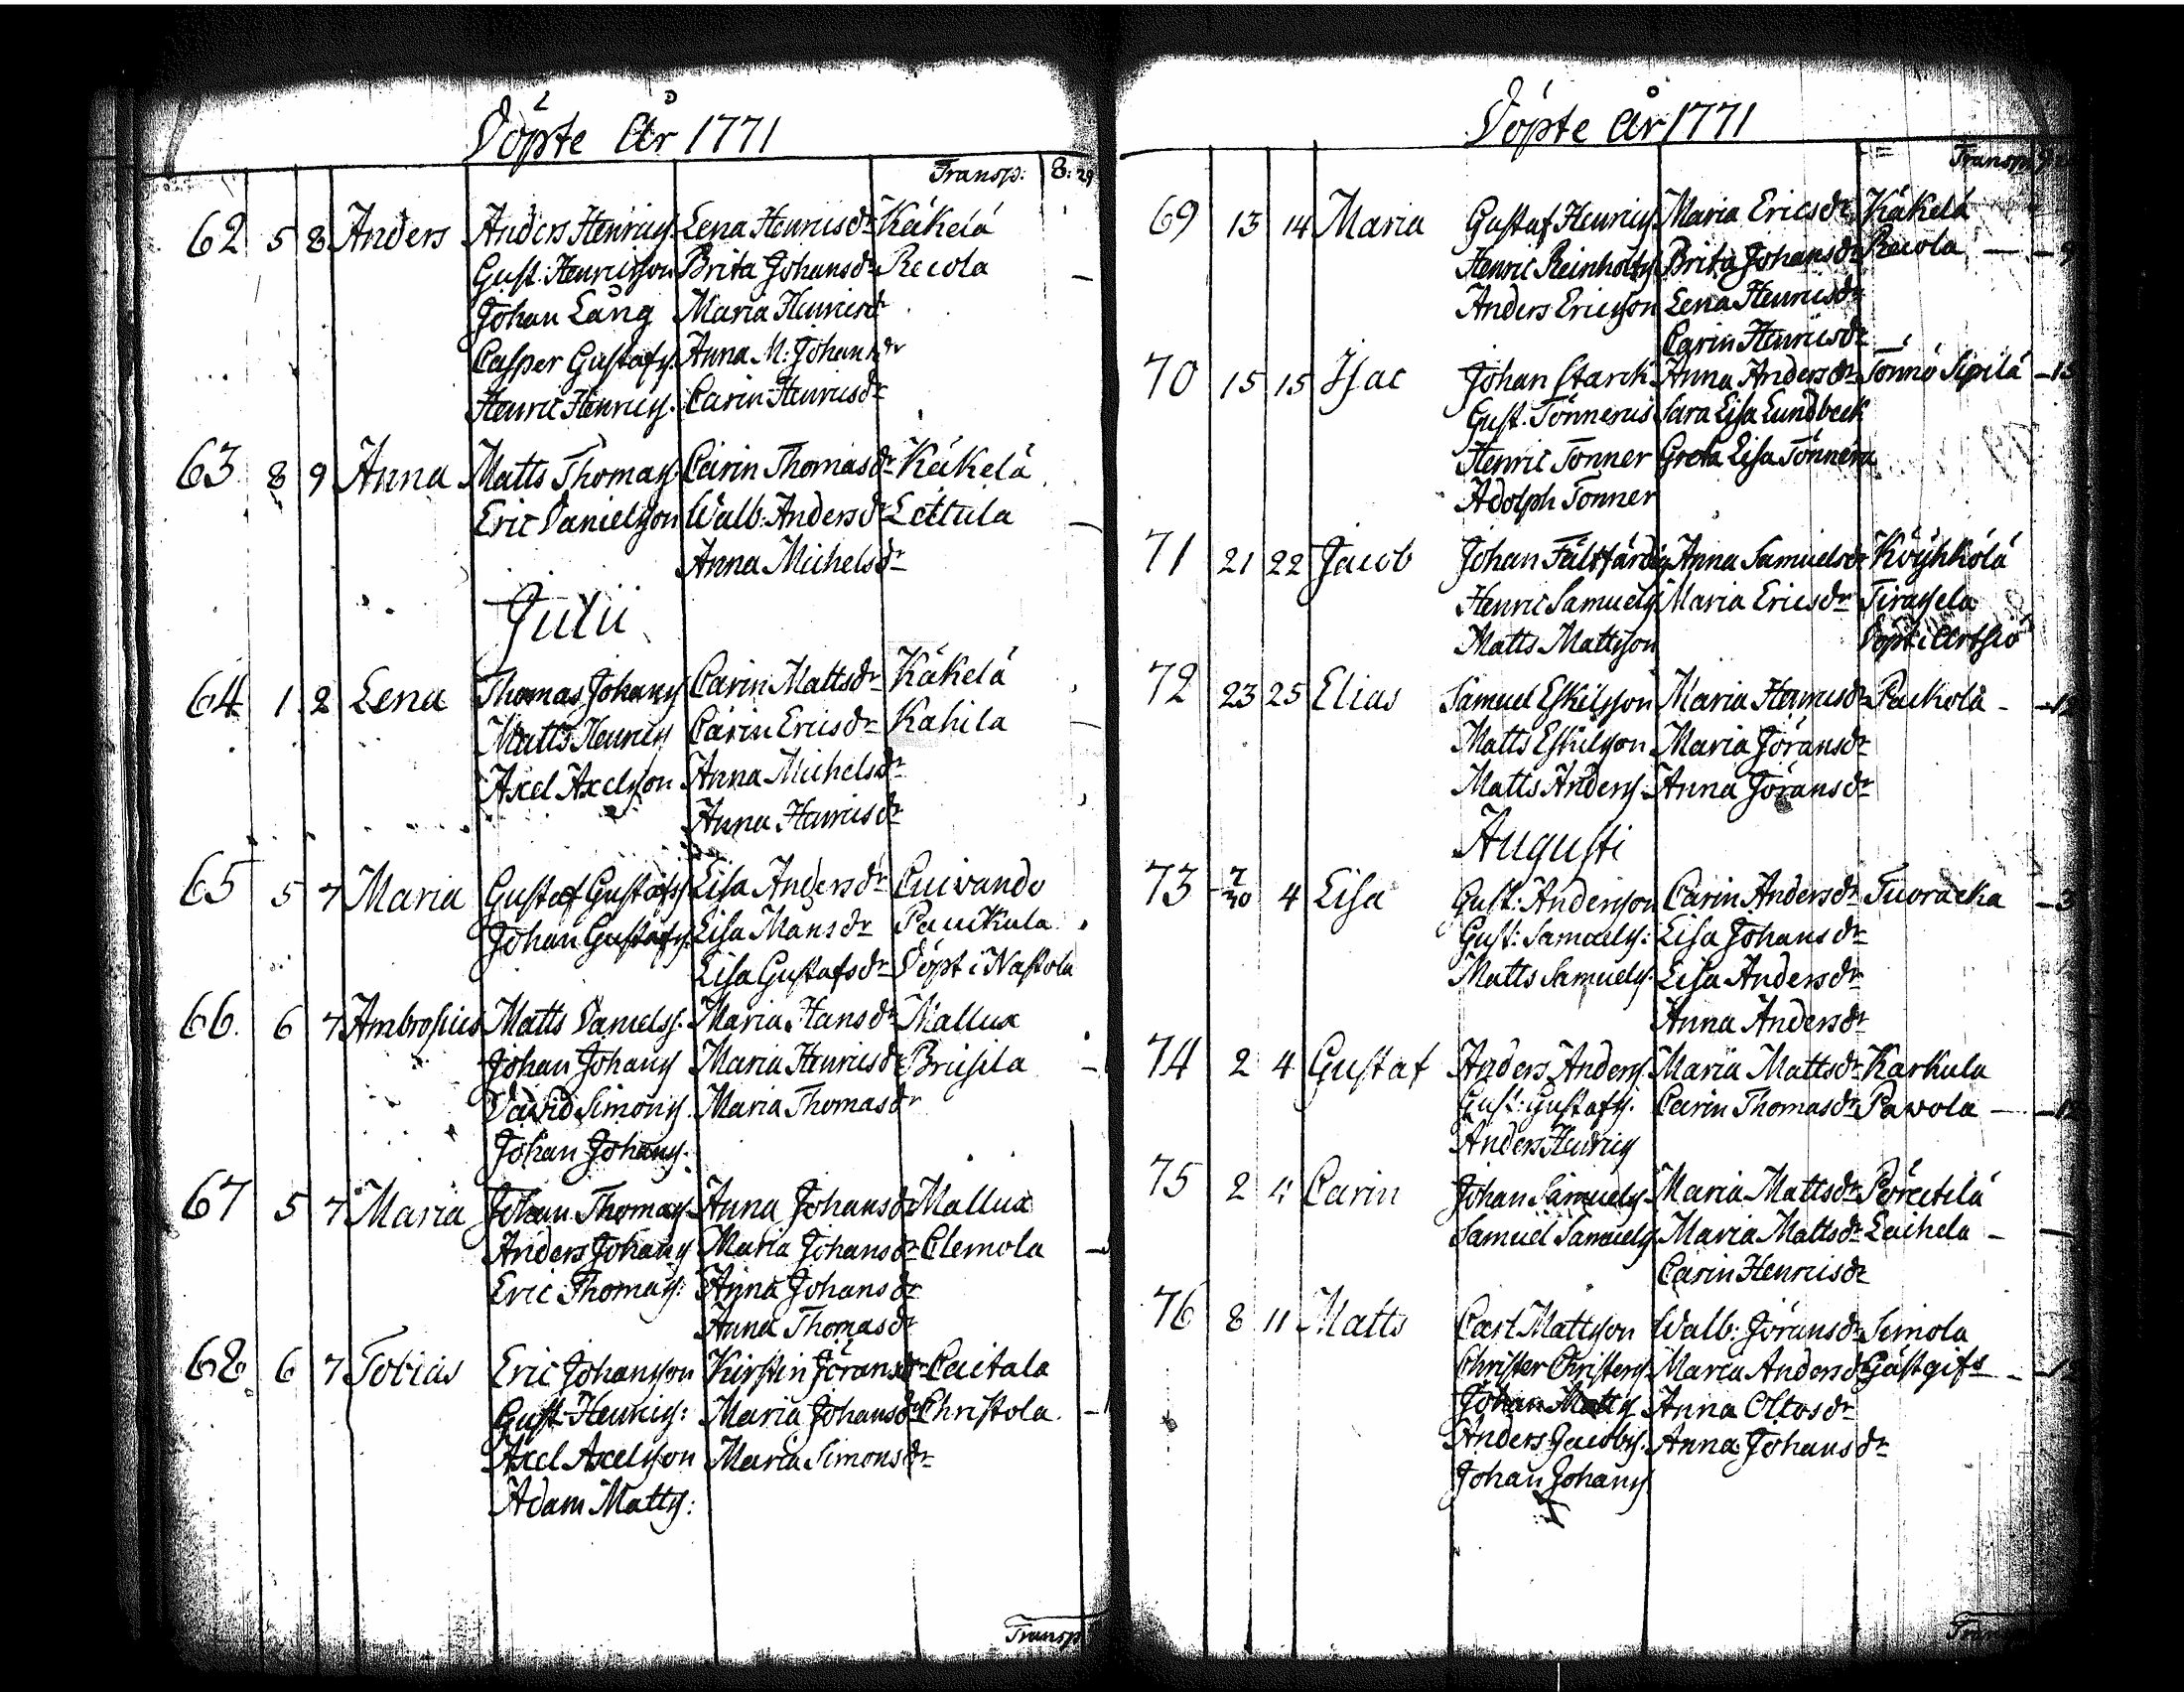 Döpte År 1771
Transp: 8: 29
62 5 8 Anders Anders Henrics. Lena Henricsdr Käkelä
Gust. Henricsson Brita Johansdr Recola
Johan Lång Maria Henricsdr
Casper Gustafs. Anna M: Johansdr
Henric Henrics. Carin Henricsdr
63 8 9 Anna Matts Thomas. Carin Thomasdr Käkelä
Eric Danielsson Walb: Andersdr Lettula
Anna Michelsdr
Julii
64 1 2 Lena Thomas Johans Carin Mattsdr Käkelä
Matts Henrics Carin Ericsdr Kahila
Axel Axelsson Anna Michelsdr
Anna Henricsdr
65 5 7 Maria Gustaf Gustafs Lisa Andersdr Cuivando
Johan Gustafs. Lisa Mansdr Paukula
Lisa Gustafsdr Döpt i Nastola
66. 6 7 Ambrosius Matts Daniels. Maria Hansdr Mallux
Johan Johans Maria Henricsdr Brusila
David Simons. Maria Thomasdr
Johan Johans.
67 5 7 Maria Johan Thomas. Anna Johansdr Mallux
Anders Johans Maria Johansdr Clemola
Eric Thomas: Anna Johansdr
Anna Thomasdr
68 6 7 Tobias Eric Johansson Kirstin Jöransdr Caitala
Gust. Henrics: Maria Johansdr Christola
Axel Axelsson Maria Simonsdr
Adam Matts:
Transp
Döpte År 1771
Transp
69 13 14 Maria Gustaf Henrics. Maria Ericsdr Käkelä
Henric Reinholts Brita Johansdr Recola — 9
Anders Ericsson Lena Henricsdr
Carin Henricsdr
70 15 15 Isac Johan Starck Anna Andersdr Tönnö Sipilä
Gust. Tönnerus Sara Lisa Lundbeck
Henric Tönner Greta Lisa Tönnera
Adolph Tonner
71 21 22 Jacob Johan Fältfärdig Anna Samuelsdr Köyhkölä
Henric Samuels Maria Ericsdr Tirasela
Matts Mattsson Döpt i Artsiö
72 23 25 Elias Samuel Eskilsson Maria Henricsdr Packola
Matts Eskilsson Maria Jöransdr
Matts Anders. Anna Jöransdr
Augusti
73 7/30 4 Lisa Gust: Andersson Carin Andersdr Tuoracka
Gust: Samuels: Lisa Johansdr
Matts Samuels. Lisa Andersdr
Anna Andersdr
74 2 4 Gustaf Anders Anders. Maria Mattsdr Karkula
Gust: Gustafs. Carin Thomasdr Pavola
Anders Henrics
75 2 4 Carin Johan Samuels. Maria Mattsdr Pöretilä
Samuel Samuels Maria Mattsdr Laihela
Carin Henricsdr
76 8 11 Matts Carl Mattsson Walb: Jöransdr Simola
Christer Christers. Maria Andersdr Gästgifs
Johan Matts Anna Ottosdr
Anders Jacobs. Anna Johansdr
Johan Johans